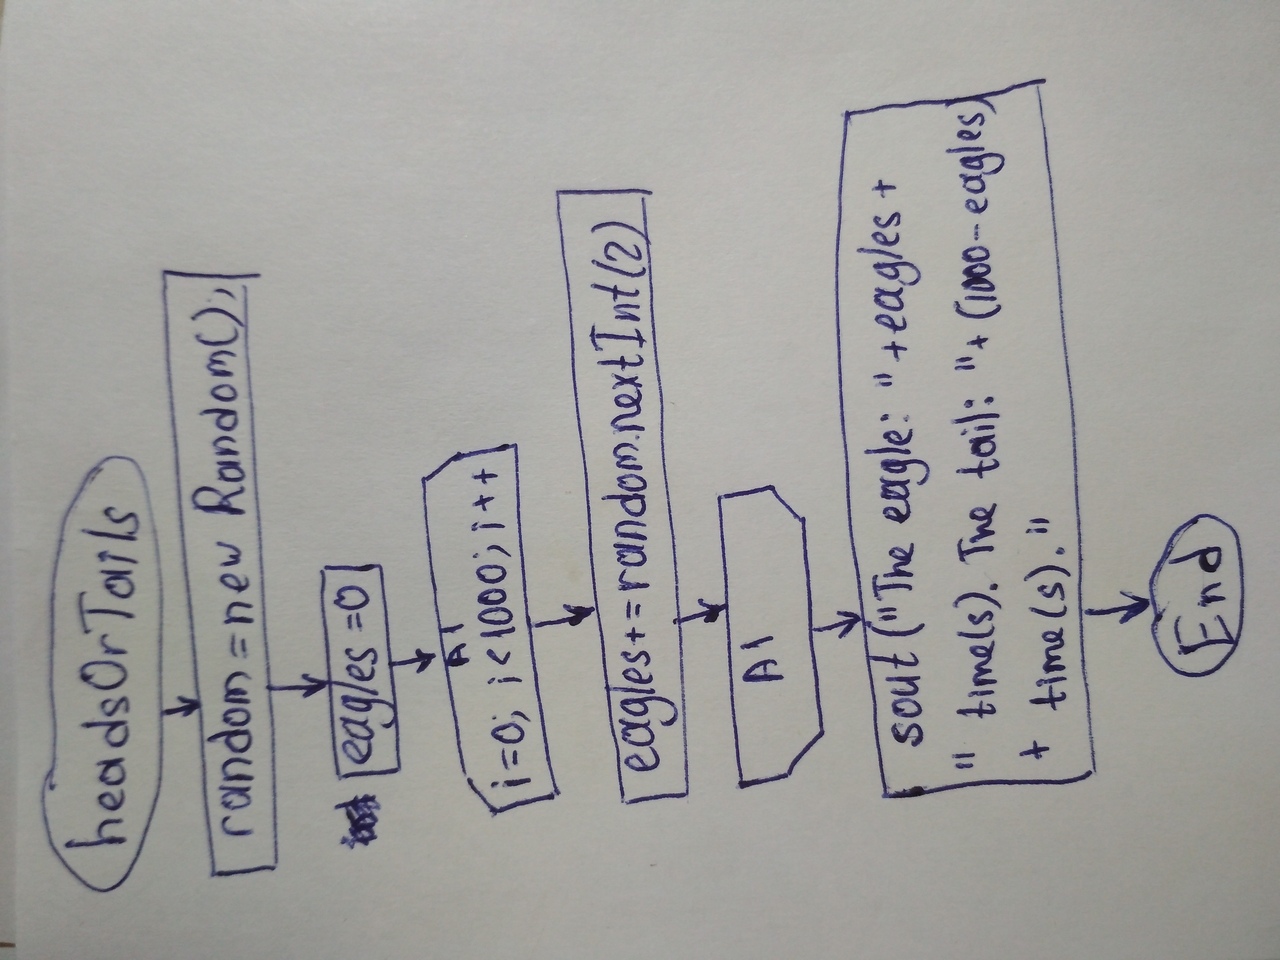 headsOrTails
random=new Random();
eagles=0
A1
i=0; i<1000; i++
eagles+=random.nextInt(2)
A1
sout("The eagle: "+eagles+
" time(s). The tail: "+(1000-eagles)
+ time(s)."
End